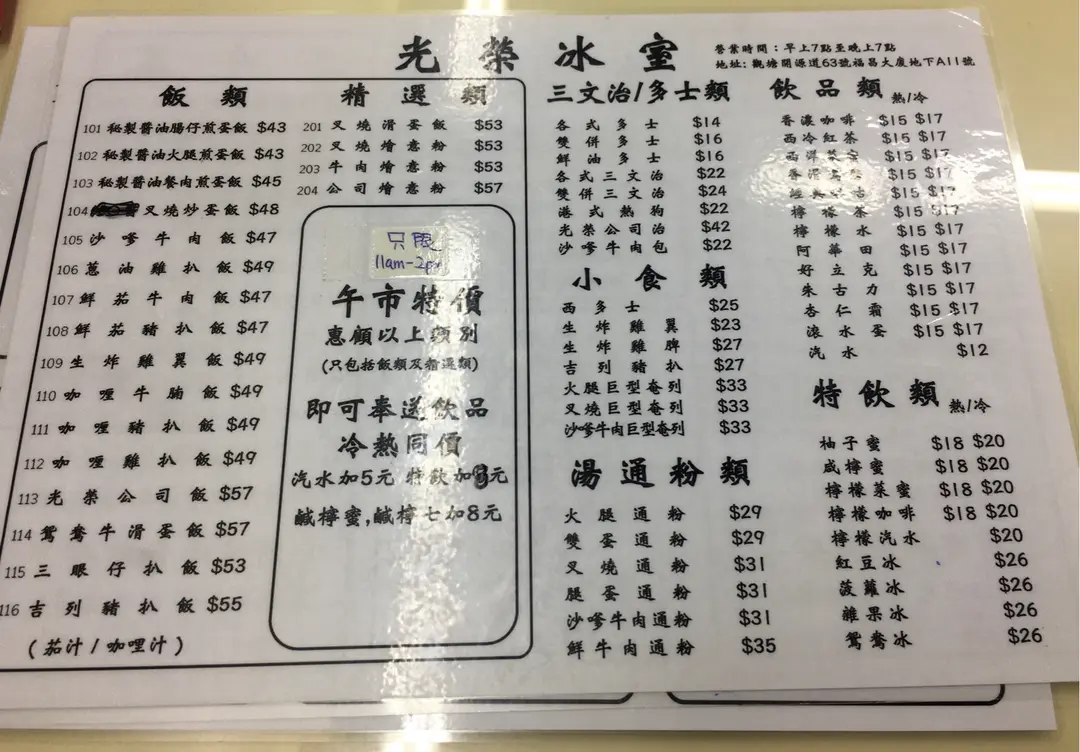 光榮冰室
營業時間：早上7點至晚上7點
地址：觀塘開源道63號福昌大廈地下A11號
飯類
101 秘製醬油腸仔煎蛋飯 $43
102 秘製醬油火腿煎蛋飯 $43
103 秘製醬油餐肉煎蛋飯 $45
104 叉燒炒蛋飯 $48
105 沙爹牛肉飯 $47
106 蔥油雞扒飯 $49
107 鮮茄牛肉飯 $47
108 鮮茄豬扒飯 $47
109 生炸雞翼飯 $49
110 咖喱牛腩飯 $49
111 咖喱豬扒飯 $49
112 咖喱雞扒飯 $49
113 光榮公司飯 $57
114 鴛鴦牛滑蛋飯 $57
115 三眼仔扒飯 $53
116 吉列豬扒飯 $55
(茄汁/咖哩汁)
精選類
201 叉燒滑蛋飯 $53
202 叉燒燴意粉 $53
203 牛肉燴意粉 $53
204 公司燴意粉 $57
只限
11am-2pm
午市特價
惠顧以上類別
(只包括飯類及精選類)
即可奉送飲品
冷熱同價
汽水加5元 特飲加8元
鹹檸蜜,鹹檸七加8元
三文治/多士類
各式多士 $14
雙併多士 $16
鮮油多士 $16
各式三文治 $22
雙併三文治 $24
港式熱狗 $22
光榮公司治 $42
沙爹牛肉包 $22
小食類
西多士 $25
生炸雞翼 $23
生炸雞脾 $27
吉列豬扒 $27
火腿巨型奄列 $33
叉燒巨型奄列 $33
沙爹牛肉巨型奄列 $33
湯通粉類
火腿通粉 $29
雙蛋通粉 $29
叉燒通粉 $31
腿蛋通粉 $31
沙爹牛肉通粉 $31
鮮牛肉通粉 $35
飲品類 熱/冷
香濃咖啡 $15 $17
西冷紅茶 $15 $17
西洋菜蜜 $15 $17
香滑 $15 $17
$15 $17
檸檬茶 $15 $17
檸檬水 $15 $17
阿華田 $15 $17
好立克 $15 $17
朱古力 $15 $17
杏仁霜 $15 $17
滾水蛋 $15 $17
汽水 $12
特飲類 熱/冷
柚子蜜 $18 $20
咸檸蜜 $18 $20
檸檬菜蜜 $18 $20
檸檬咖啡 $18 $20
檸檬汽水 $20
紅豆冰 $26
菠蘿冰 $26
雜果冰 $26
鴛鴦冰 $26